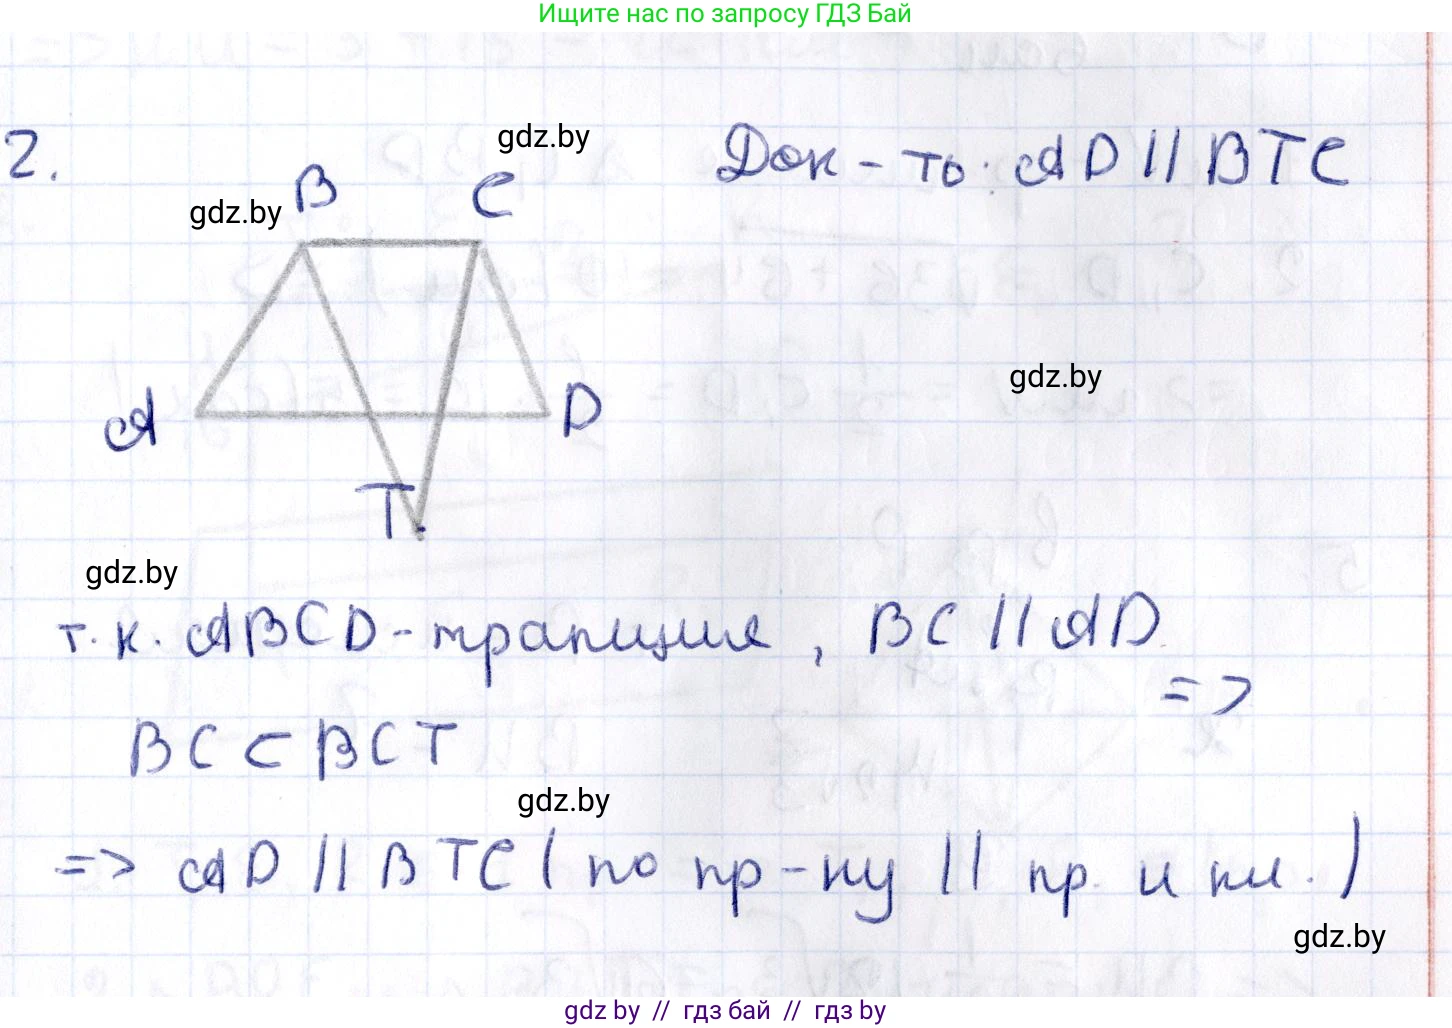 Ищите нас по запросу ГДЗ Бай
2.
gdz.by
Док-ть: AD || BTC
B
C
gdz.by
gdz.by
A
D
T
gdz.by
т.к. ABCD - трапция, BC || AD
=>
BC ⊂ BCT
gdz.by
=> AD || BTC (по пр-ку || пр. и пл.)
gdz.by
gdz by // гдз бай // гдз by